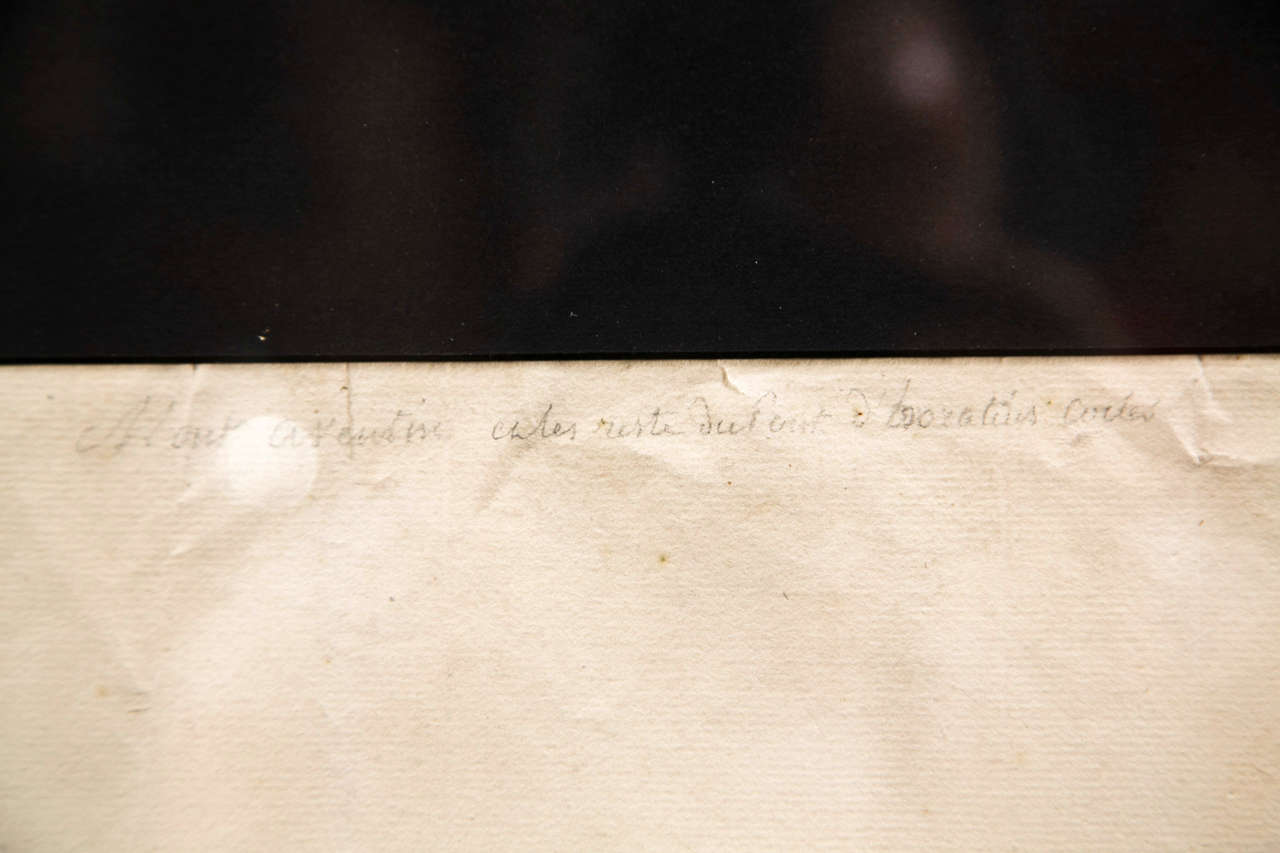 Mont aventin et les reste du Pont d'horatius Cocles